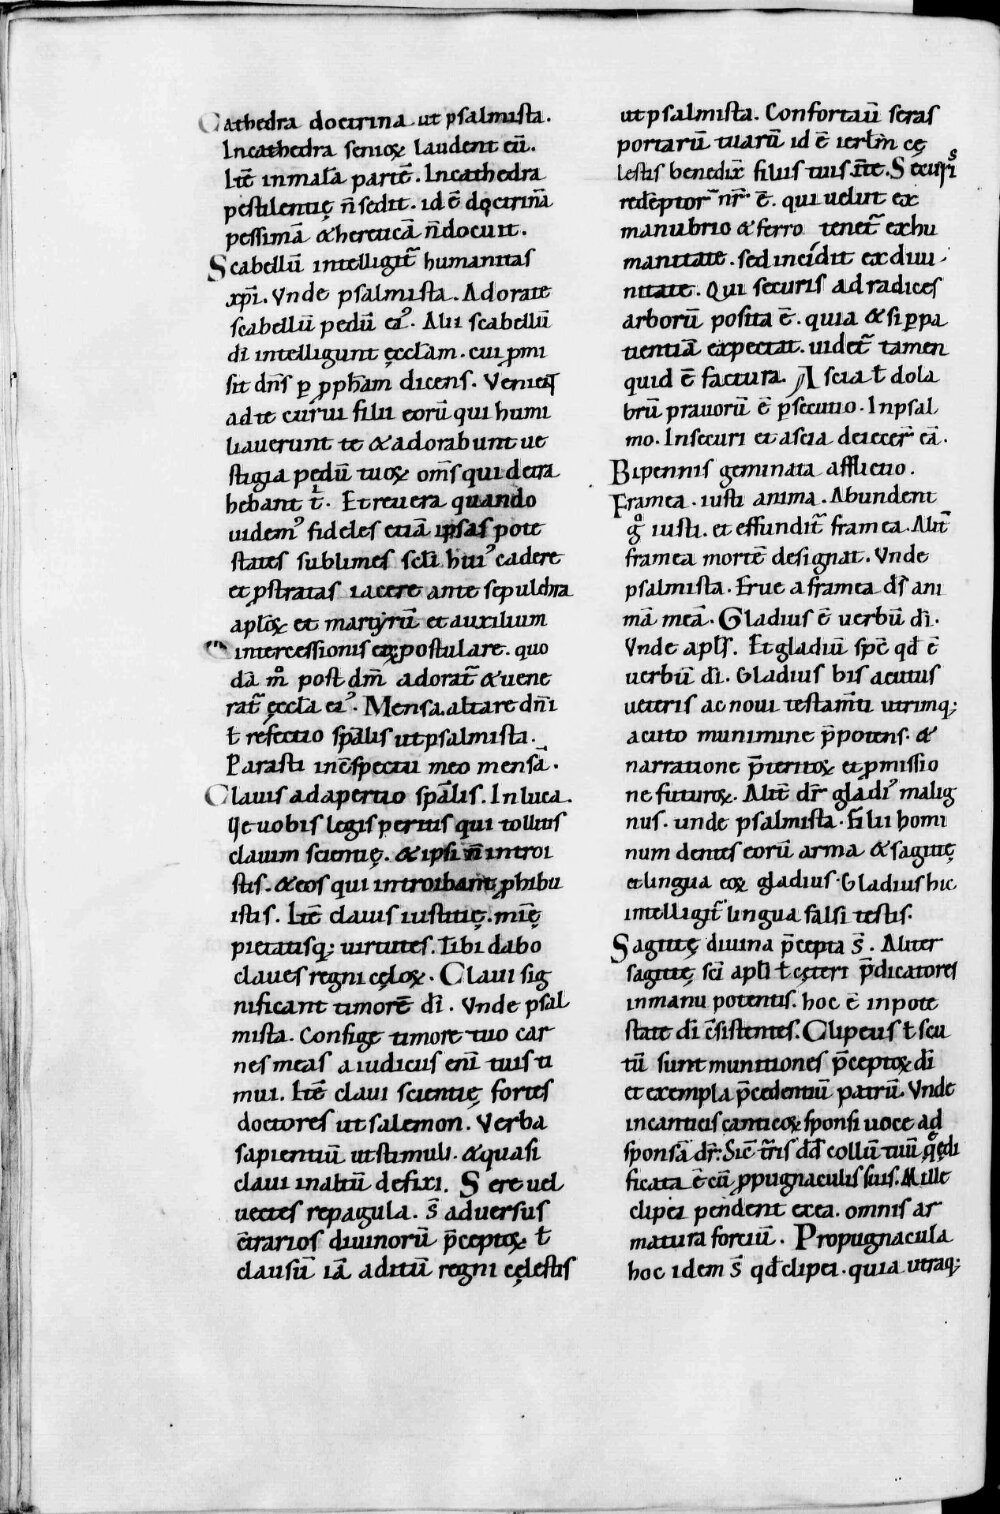 Cathedra doctrina ut psalmista.
Incathedra senioꝝ laudent eū.
Itē inmala partē. Incathedra
pestilentię n̄ sedit. id ē doctrinā
pessimā & hereticā n̄docuit.
Scabellū intelligit̄ humanitas
xp̄i. Vnde psalmista. Adorate
scabellū pedū eiꝰ. Alii scabellū
di intelligunt ęcclam̄. cui ꝓmi
sit dn̄s ꝑ ꝓph̄am dicens. Venient
ad te curui filii eorū qui humi
liauerunt te & adorabunt ue
stigia pedū tuoꝝ om̄s qui detra
hebant t̄. Et reuera quando
uidemꝰ fideles etiā ipsas pote
states sublimes scl̄i huiꝰ cadere
et ꝓstratas iacere ante sepulchra
aplōꝝ et martyrū et auxilium
intercessionis eoꝝ postulare. quo
dā m̊ post dm̄ adorat̄ & uene
rat̄ ęccl̄a eiꝰ. Mensa. altare dn̄i
ł refectio sp̄alis ut psalmista.
Parasti inc̄spectu meo mensā.
Clauis adapertio sp̄alis. In luca.
Ve uobis legis peritis qui tollitis
clauim scientię. & ipsi n̄ introi
stis. & eos qui introibant ꝓhibu
istis. Itē clauis iustitię. mię
pietatisq; uirtutes. Tibi dabo
claues regni cęloꝝ. Claui sig
nificant timorē di. Vnde psal
mista. Confige timore tuo car
nes meas a iudiciis enī tuis ti
mui. Itē claui scientię fortes
doctores ut salemon. Verba
sapientiū ut stimuli. & quasi
claui in altū defixi. Sere uel
uectes repagula. s̄ aduersus
c̄trarios diuinorū p̄ceptoꝝ ł
clausū iā aditū regni cęlestis
ut psalmista. Confortauī seras
portarū tuarū id ē ierlm̄ cę
lestis benedix̄ filiis tuis ī te. Secursi
redēptor nr̄ ē. qui uelut ex
manubrio & ferro tenet̄ ex hu
manitate. sed incidit ex diui
nitate. Qui securis ad radices
arborū posita ē. quia & si ꝑ pa
tientiā expectat. uidet̄ tamen
quid ē factura. Ascia ł dola
brū prauorū ē ꝑsecutio. In psal
mo. In securi et ascia deiecer̄ eā.
Bipennis geminata afflictio.
Framea. iusti anima. Abundent
g̊ iusti. et effundit̄ framea. Alit̄
framea mortē designat. Vnde
psalmista. Erue a framea ds̄ ani
mā meā. Gladius ē uerbū di.
Vnde apls̄. Et gladiū spc̄ qđ ē
uerbū di. Gladius bis acutus
ueteris ac noui testam̄ti utrimq;
acuto munimine p̄potens. &
narratione p̄teritoꝝ et ꝓmissio
ne futuroꝝ. Alit̄ dr̄ gladiꝰ malig
nus. unde psalmista. Filii homi
num dentes eorū arma & sagittę
et lingua eoꝝ gladius. Gladius hic
intelligit̄ lingua falsi testis.
Sagittę diuina p̄cepta s̄. Aliter
sagittę sc̄i apl̄i ł cęteri p̄dicatores
in manu potentis. hoc ē in pote
state di c̄sistentes. Clipeus ł scu
tū sunt munitiones p̄ceptoꝝ di
et exempla p̄cedentiū patrū. Vnde
in canticis canticoꝝ sponsi uoce ad
sponsā dr̄. Sic̄ turris dđ collū tuū q̄ ędi
ficata ē cū ꝓpugnaculis suis. Mille
clipei pendent ex ea. omnis ar
matura fortiū. Propugnacula
hoc idem s̄ qđ clipei. quia utraq;